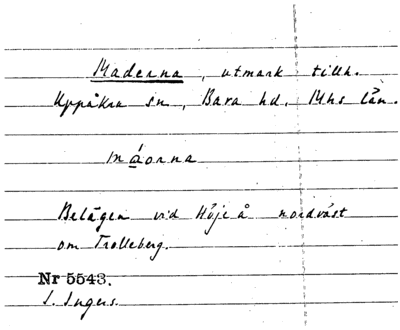 Maderna, utmark tillh.
Uppåkra sn, Bara hd, Mhs län.
máorna
Belägen vid Höje å nordväst
om Trolleberg.
Nr 5543.
I. Ingers.